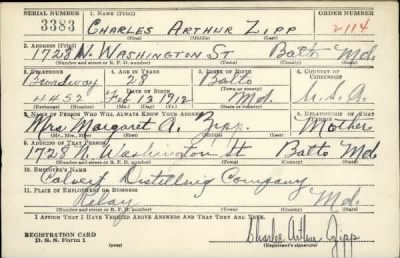 SERIAL NUMBER 1. NAME (Print) ORDER NUMBER
3383 CHARLES ARTHUR ZIPP 2114
(First) (Middle) (Last)
2. ADDRESS (Print)
1728 N. WASHINGTON ST Balto Md.
(Number and street or R. F. D. number) (Town) (County) (State)
3. TELEPHONE 4. AGE IN YEARS 5. PLACE OF BIRTH 6. COUNTRY OF CITIZENSHIP
Broadway 28 Balto
DATE OF BIRTH (Town or county)
4457 Feb 13 1912 Md. U.S.A.
(Exchange) (Number) (Mo.) (Day) (Yr.) (State or country)
7. NAME OF PERSON WHO WILL ALWAYS KNOW YOUR ADDRESS 8. RELATIONSHIP OF THAT PERSON
Mrs. Margaret A. Zipp. Mother
(Mr., Mrs., Miss) (First) (Middle) (Last)
9. ADDRESS OF THAT PERSON
1728 N. Washington St Balto Md.
(Number and street or R. F. D. number) (Town) (County) (State)
10. EMPLOYER'S NAME
Calvert Distilling Company
11. PLACE OF EMPLOYMENT OR BUSINESS
Relay Md.
(Number and street or R. F. D. number) (Town) (County) (State)
I AFFIRM THAT I HAVE VERIFIED ABOVE ANSWERS AND THAT THEY ARE TRUE.
REGISTRATION CARD
D. S. S. Form 1 (over) Charles Arthur Zipp
(Registrant's signature)